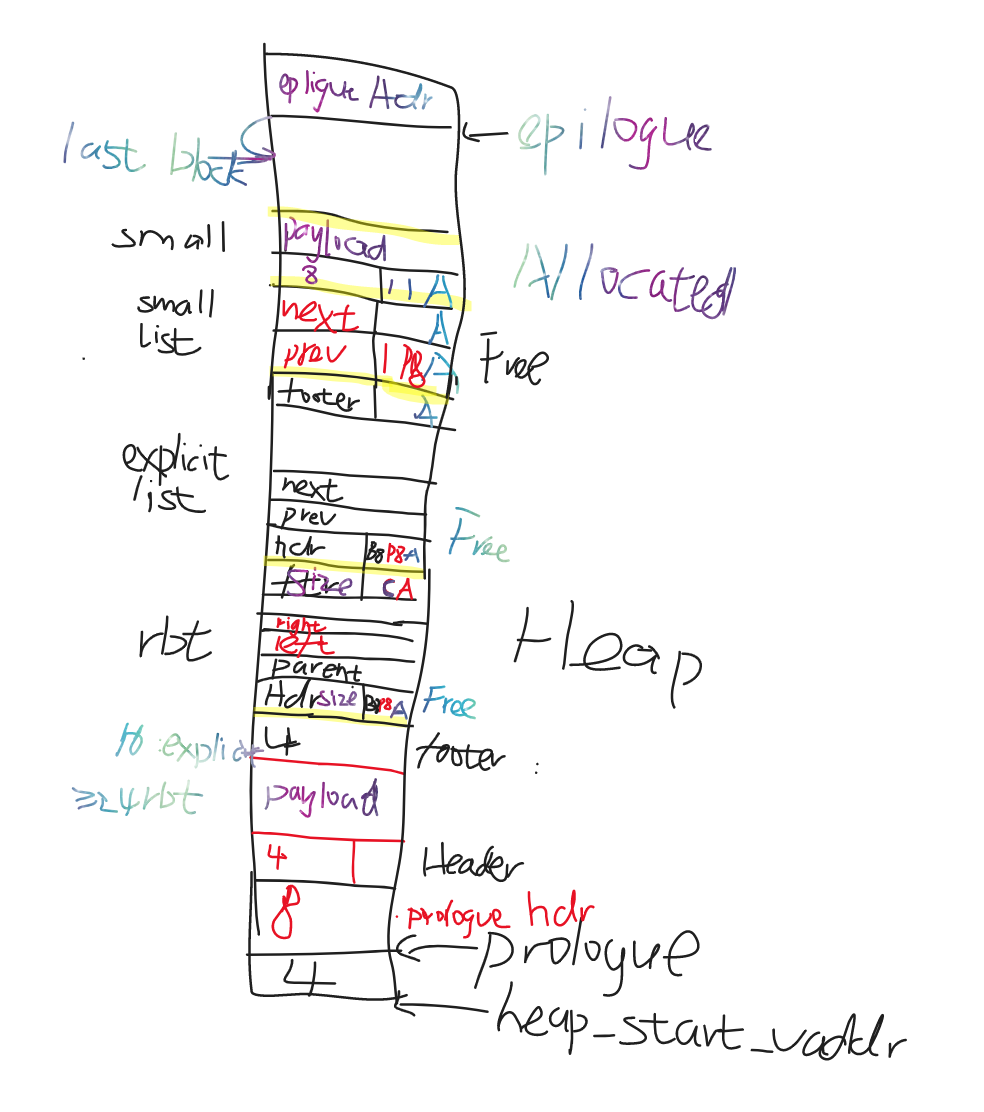 epligue Hdr
epilogue
last block
small
payload
8
11 A
Allocated
small
list
next
A
prev
1 P8
Free
footer
A
explicit
list
next
prev
hdr
B8 P8 A
Free
size
C A
rbt
right
left
parent
Hdr size
P8 A
Free
Heap
4
footer
16 explicit
≥24 rbt
payload
4
Header
8
prologue hdr
prologue
4
heap_start_vaddr